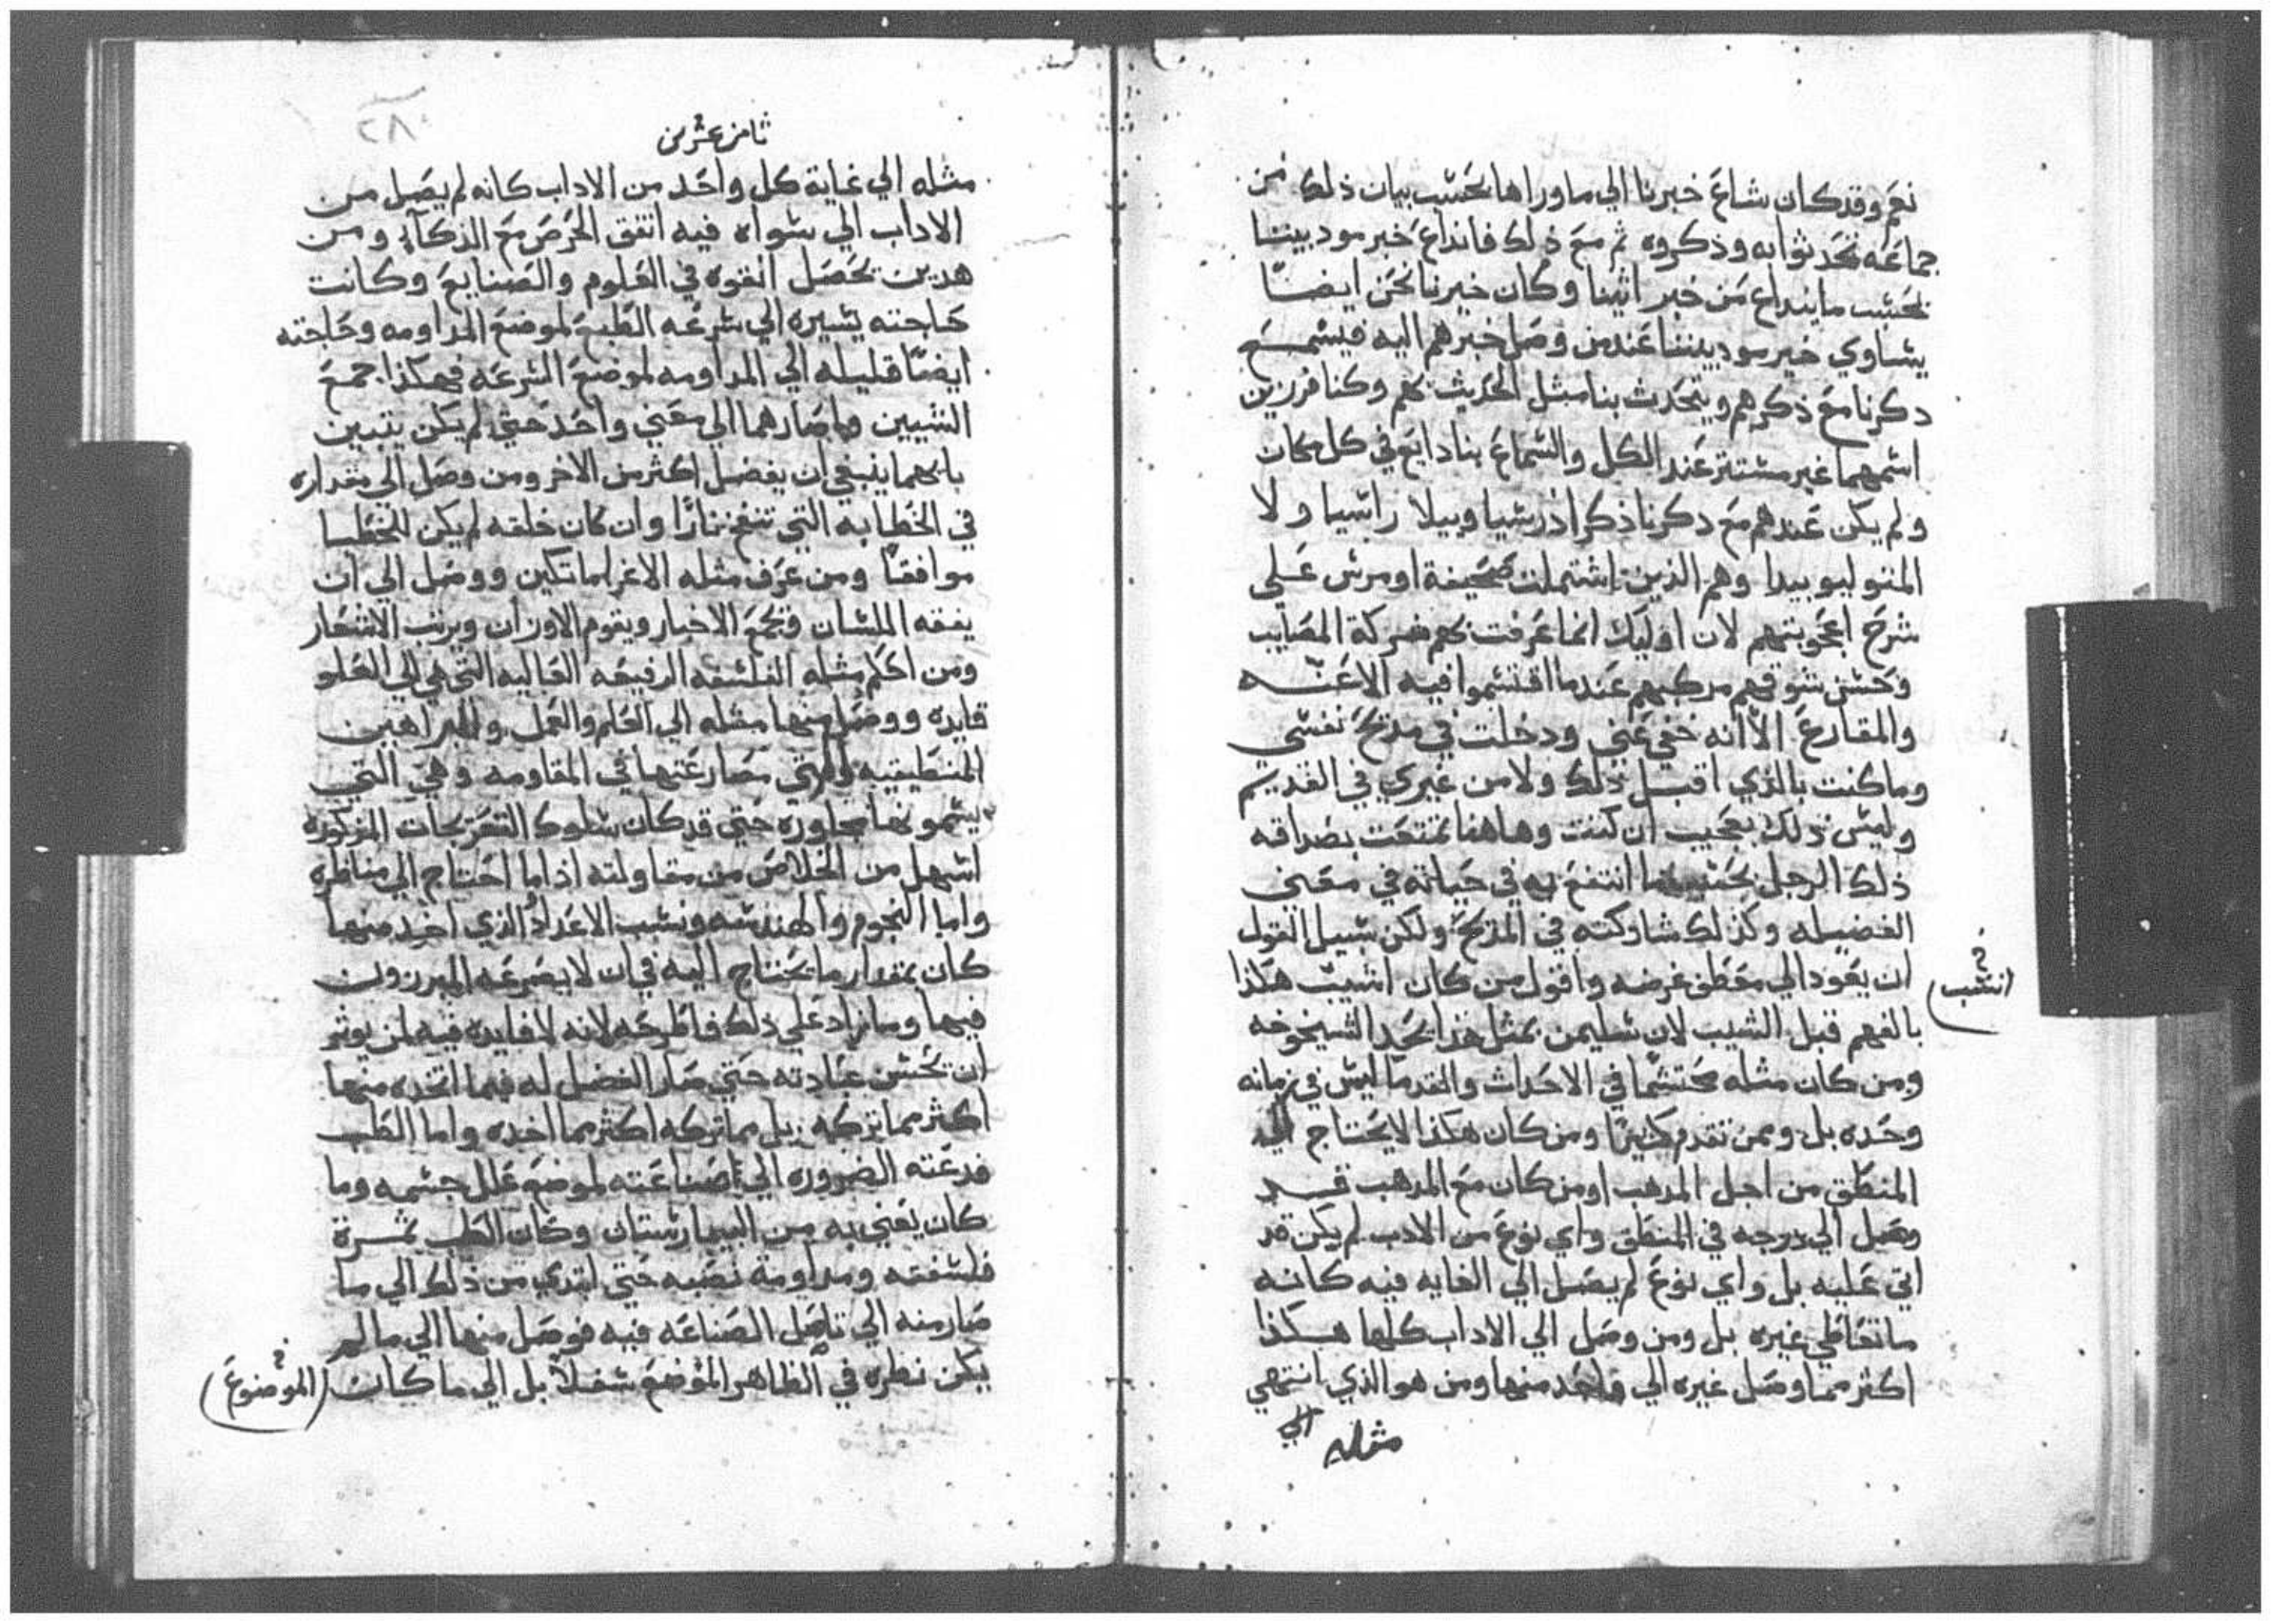 نعم وقد كان شاع خبرنا الي ما وراها بحسب بيان ذلك من
جماعه تحدثوا به وذكروه ثم مع ذلك فانداع خبر مودبيننا
بحسب ما ينداع من خبر اثينا وكان خبرنا نحن ايضًا
يساوي خبر مودبيننا عند من وصل خبرهم اليه فيسمع
دكرنا مع ذكرهم ويتحدث بنا مثل الحديث بهم وكنا فرزين
اسمهما غير مستتر عند الكل والسماع بنا دايع في كل مكان
ولم يكن عندهم مع دكرنا ذكر اذرسيا وبيلا راسيا ولا
المنوليو بيدا وهم الذين اشتملت صحيفة اومرس علي
شرح اعجوبتهم لان اوليك انما عرفت بهم شركة المصايب
وحسن سوقهم مركبهم عندما اقتسموا فيه الاعنه
والمقارع الا انه خفي عني ودخلت في مدح نفسي
وما كنت بالذي اقبل ذلك ولا من غيري في القديم
وليس ذلك بعجيب ان كنت وهاهنا تمتعت بصداقه
ذلك الرجل بحسب ما انتفع به في حياته في معني
الفضيله وكذلك شاركته في المدح ولكن سبيل القول
ان يعود الي مقطن غرضه واقول من كان اشيب هكذا
(انسب)
بالفهم قبل الشيب لان سليمن بمثل هذا يحد الشيخوخه
ومن كان مثله محتشمًا في الاحداث والقدما ليس في زمانه
وحده بل ومن تقدم كثيرًا ومن كان هكذا لا يحتاج الي
المنطق من اجل المدهب او من كان مع المدهب قد
وصل الي درجه في المنطق واي نوع من الادب لم يكن قد
اتي عليه بل واي نوع لم يصل الي الغايه فيه كانه
ما تعاطي غيره بل ومن وصل الي الاداب كلها هكذا
اكثر مما وصل غيره الي واحد منها ومن هو الذي انتهي
مثله الي
ثامن عشر من
مثله الي غاية كل واحد من الاداب كانه لم يصل من
الاداب الي سواه فيه اتفق الحرص مع الذكآء ومن
هدين تحصل القوه في العلوم والصنايع وكانت
حاجته يسيره الي سرعه الطبع لموضع المداومه وحاجته
ايضًا قليله الي المداومه لموضع السرعه فهكذا جمع
الشيين واصارهما الي معني واحد حتي لم يكن يتبين
بايهما ينبغي ان يفضل اكثر من الاخر ومن وصل الي مقداره
في الخطابه التي تنفخ نارًا وان كان خلقه لم يكن للخطبا
موافقًا ومن عرف مثله الاغراماتكين ووصل الي ان
يفقه اللسان ويجمع الاخبار ويقوم الاوزان ويرتب الاشعار
ومن احكم مثله الفلسفه الرفيعه العاليه التي هي الي العلو
قايده ووصل منها مثله الي العلم والعمل والبراهين
المنطيقيه والتي مصارعتها في المقاومه وهي التي
يسمونها محاوره حتي قد كان سلوك التعريجات المذكوره
اسهل من الخلاص من مقاولته اذا ما احتاج الي مناظره
واما النجوم والهندسه ونسب الاعداد الذي اخد منها
كان بمقدار ما يحتاج اليه في ان لا يصرعه المبرزون
فيها وما زاد علي ذلك فاطرحه لانه لا فايده فيه لمن يوثر
ان تحسن عبادته حتي صار الفضل له فيما اتخده منها
اكثر مما تركه بل مما تركه اكثر مما اخده واما الطب
فدعته الضروره الي صناعته لموضع علل جسمه وما
كان يعني به من البيمارستان وكان الطب ثمرة
فلسفته ومداومة نصبه حتي ابتدي من ذلك الي ما
صار منه الي تاصل الصناعه فيه فوصل منها الي ما لم
يكن نظره في الظاهر الموضع شغلاً بل الي ما كان
(الموضوع)